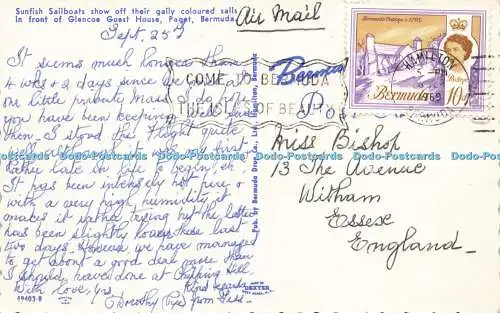 Sunfish Sailboats show off their gally coloured sails
in front of Glencoe Guest House, Paget, Bermuda.
Air Mail
Sept. 25th
It seems much longer than
4 wks & 2 days since we had
our little private Mass. I do hope
you have been keeping well since
then. I stood the flight quite
well although it was my first.
Rather late in life to begin, eh!
It has been intensely hot here &
with a very high humidity it
makes it rather trying but the latter
has been slightly lower these last
two days. However we have managed
to get about a good deal more than
I should have done at Chipping Hill.
Kind regards
With love, yrs,
Dorothy from
COME TO BERMUDA
THE ISLES OF BEAUTY
Bermuda
Pub. by Bermuda Drug Co., Ltd. Hamilton, Bermuda
Bermuda
10d
HAMILTON
Miss Bishop
13 The Avenue
Witham
Essex
England
MADE BY
DEXTER
49403-B
Dodo-Postcards Dodo-Postcards Dodo-Postcards Dodo-Postcards Dodo-Postcards Dodo-Postcards